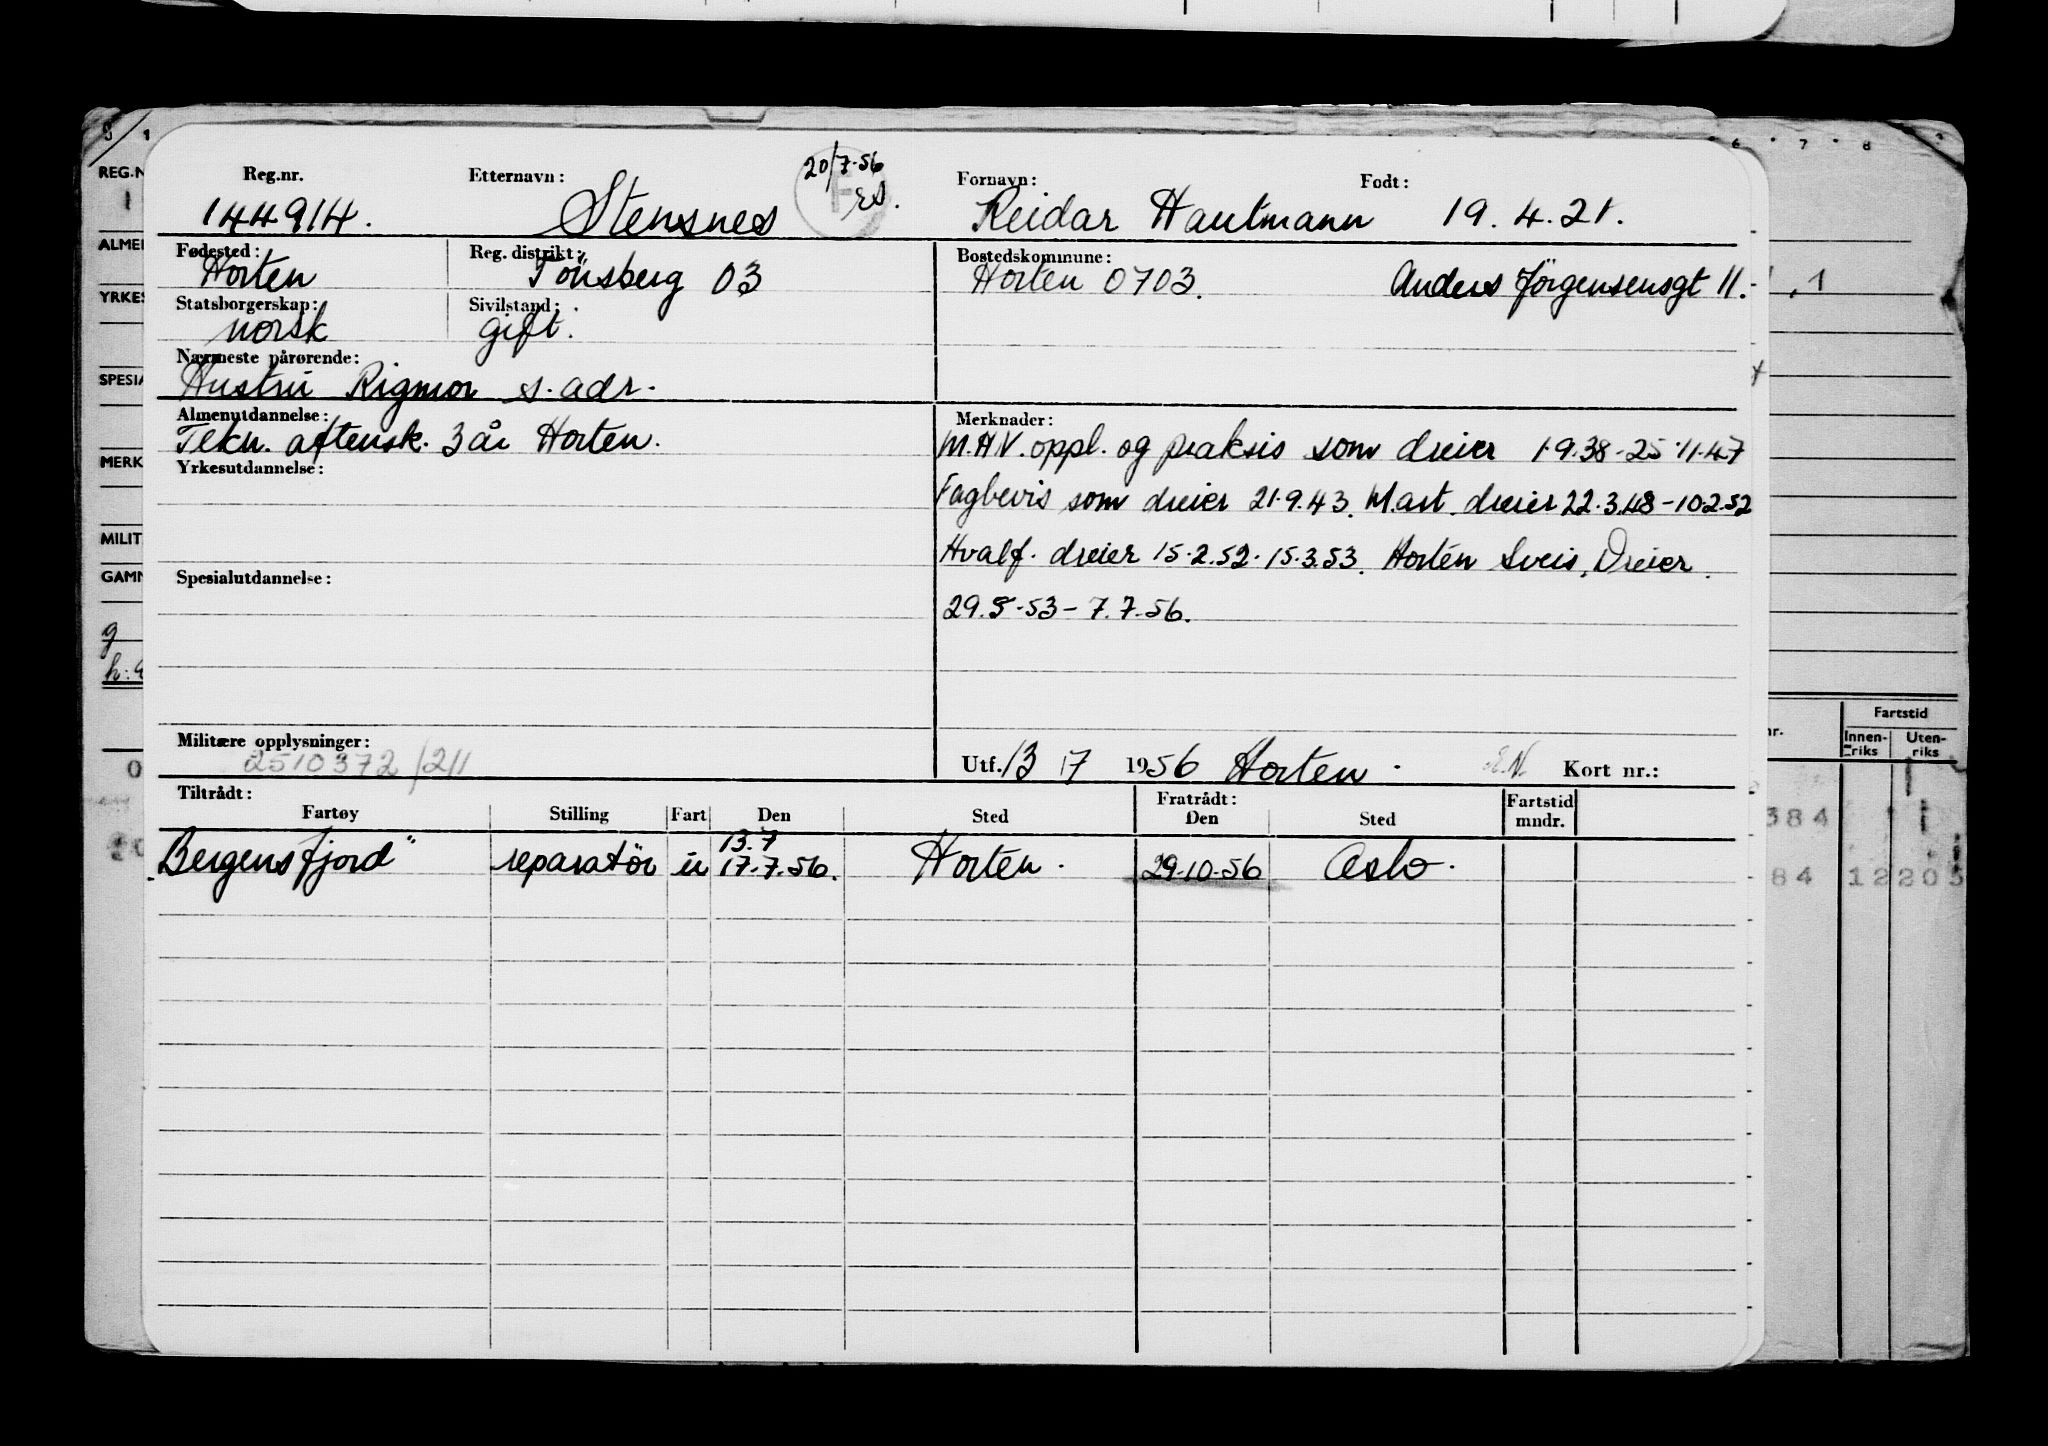 20/7-56
Reg.nr. Etternavn: Fornavn: Født:
144914. Stensnes Reidar Hautmann 19.4.21.
Fødested: Reg. distrikt: Bostedskommune:
Horten Tönsberg 03 Horten 0703. Anders Jörgensensgt 11.
Statsborgerskap: Sivilstand:
norsk gift.
Nærmeste pårørende:
Hustru Rigmor s. adr.
Almenutdannelse: Merknader:
Tekn. aftensk. 3 år Horten. M.H.V. oppl. og praksis som dreier 1.9.38-25.11.47
Yrkesutdannelse:
Fagbevis som dreier 21.9.43. M.art. dreier 22.3.48-10.2.52
Hvalf. dreier 15.2.52-15.3.53. Horten Sveis, Dreier.
Spesialutdannelse:
29.5-53-7.7.56.
Militære opplysninger:
2510372/211 Utf. 13 7 1956 Horten. E.N. Kort nr.:
Tiltrådt: Fratrådt: Fartstid
Fartøy Stilling Fart Den Sted Den Sted mndr.
13.7
"Bergensfjord" reparatör u 17.7.56. Horten. 29-10-56 Oslo.
REG.N
ALMEN
YRKES
SPESIA
MERK
MILIT
GAMN
g
6 7 8
Fartstid
Innen-riks Uten-riks
384
84 12205